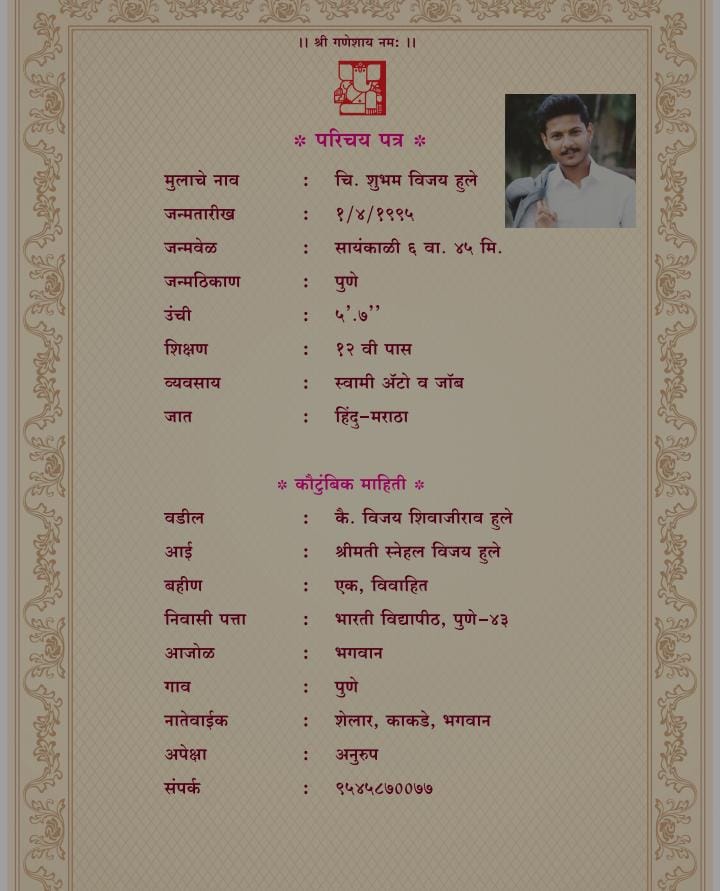 ।। श्री गणेशाय नमः ।।
❊ परिचय पत्र ❊
मुलाचे नाव : चि. शुभम विजय हुले
जन्मतारीख : १/४/१९९५
जन्मवेळ : सायंकाळी ६ वा. ४५ मि.
जन्मठिकाण : पुणे
उंची : ५’.७’’
शिक्षण : १२ वी पास
व्यवसाय : स्वामी ॲटो व जॉब
जात : हिंदु–मराठा
❊ कौटुंबिक माहिती ❊
वडील : कै. विजय शिवाजीराव हुले
आई : श्रीमती स्नेहल विजय हुले
बहीण : एक, विवाहित
निवासी पत्ता : भारती विद्यापीठ, पुणे–४३
आजोळ : भगवान
गाव : पुणे
नातेवाईक : शेलार, काकडे, भगवान
अपेक्षा : अनुरुप
संपर्क : ९५४५८७००७७